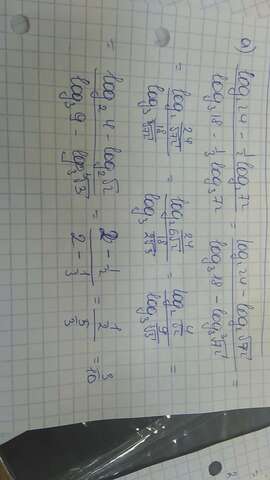 a) (log₂24 - ½ log₂72)/(log₃18 - ⅓ log₃72) = (log₂24 - log₂√72)/(log₃18 - log₃∛72) =
= (log₂ 24/√72)/(log₃ 18/∛72) = (log₂ 24/6√2)/(log₃ 18/2∛9) = (log₂ 4/√2)/(log₃ 9/∛9) =
= (log₂4 - log₂√2)/(log₃9 - log₃∛3) = (2 - ½)/(2 - ⅓) = (1/2)/(5/3) = 3/10